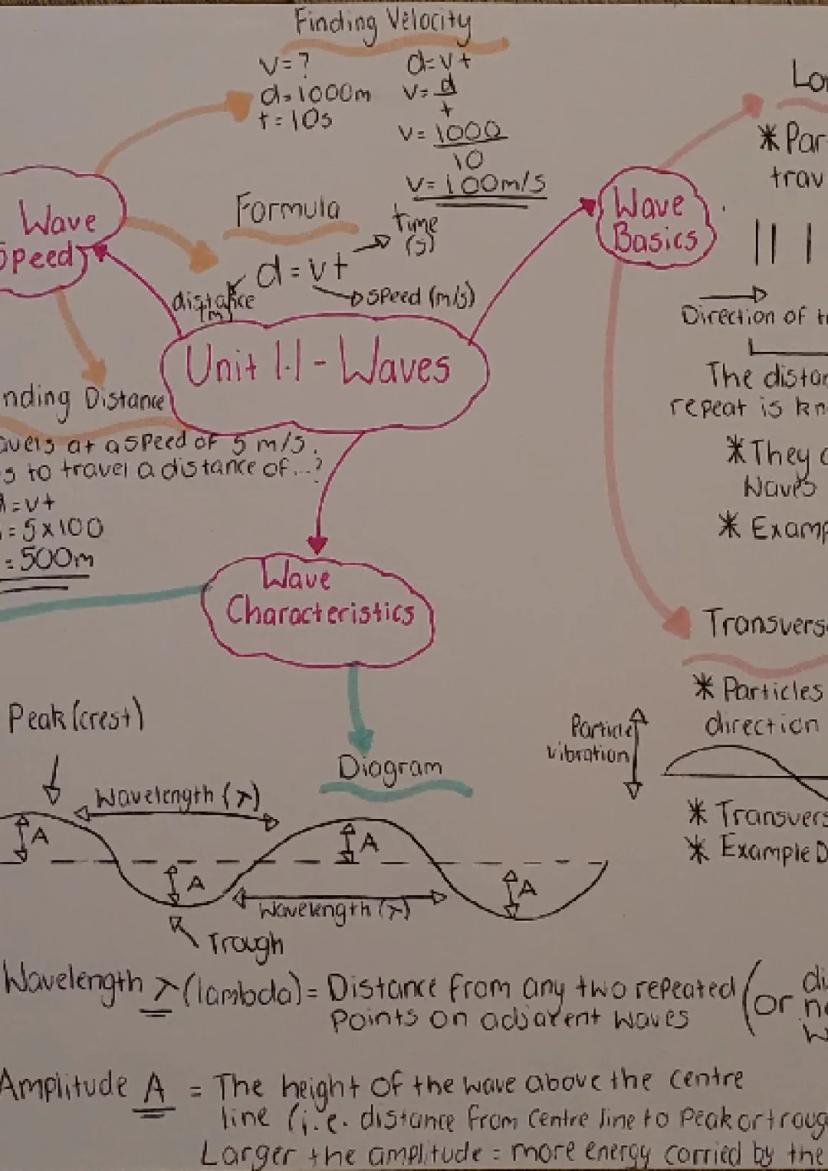 Finding Velocity
v = ?
d = 1000m
t = 10s
d = vt
v = d
t
v = 1000
10
v = 100m/s
Wave
Speed
Formula
d = vt
time
(s)
distance
m
speed (m/s)
Unit 1.1 - Waves
Wave
Basics
Lon
* Par
trav
Direction of tr
The distan
repeat is kn
* They a
Waves
* Examp
nding Distance
avels at a speed of 5 m/s.
s to travel a distance of...?
d = vt
= 5 x 100
= 500m
Wave
Characteristics
Transverse
* Particles
direction
Particle
vibration
* Transvers
* Example D
Diagram
Peak (crest)
Wavelength (λ)
A
A
A
A
Wavelength (λ)
Trough
Wavelength λ (lambda) = Distance from any two repeated
points on adjacent waves
(or
di
ne
w
Amplitude A = The height of the wave above the centre
line (i.e. distance from centre line to peak or troug
Larger the amplitude = more energy carried by the